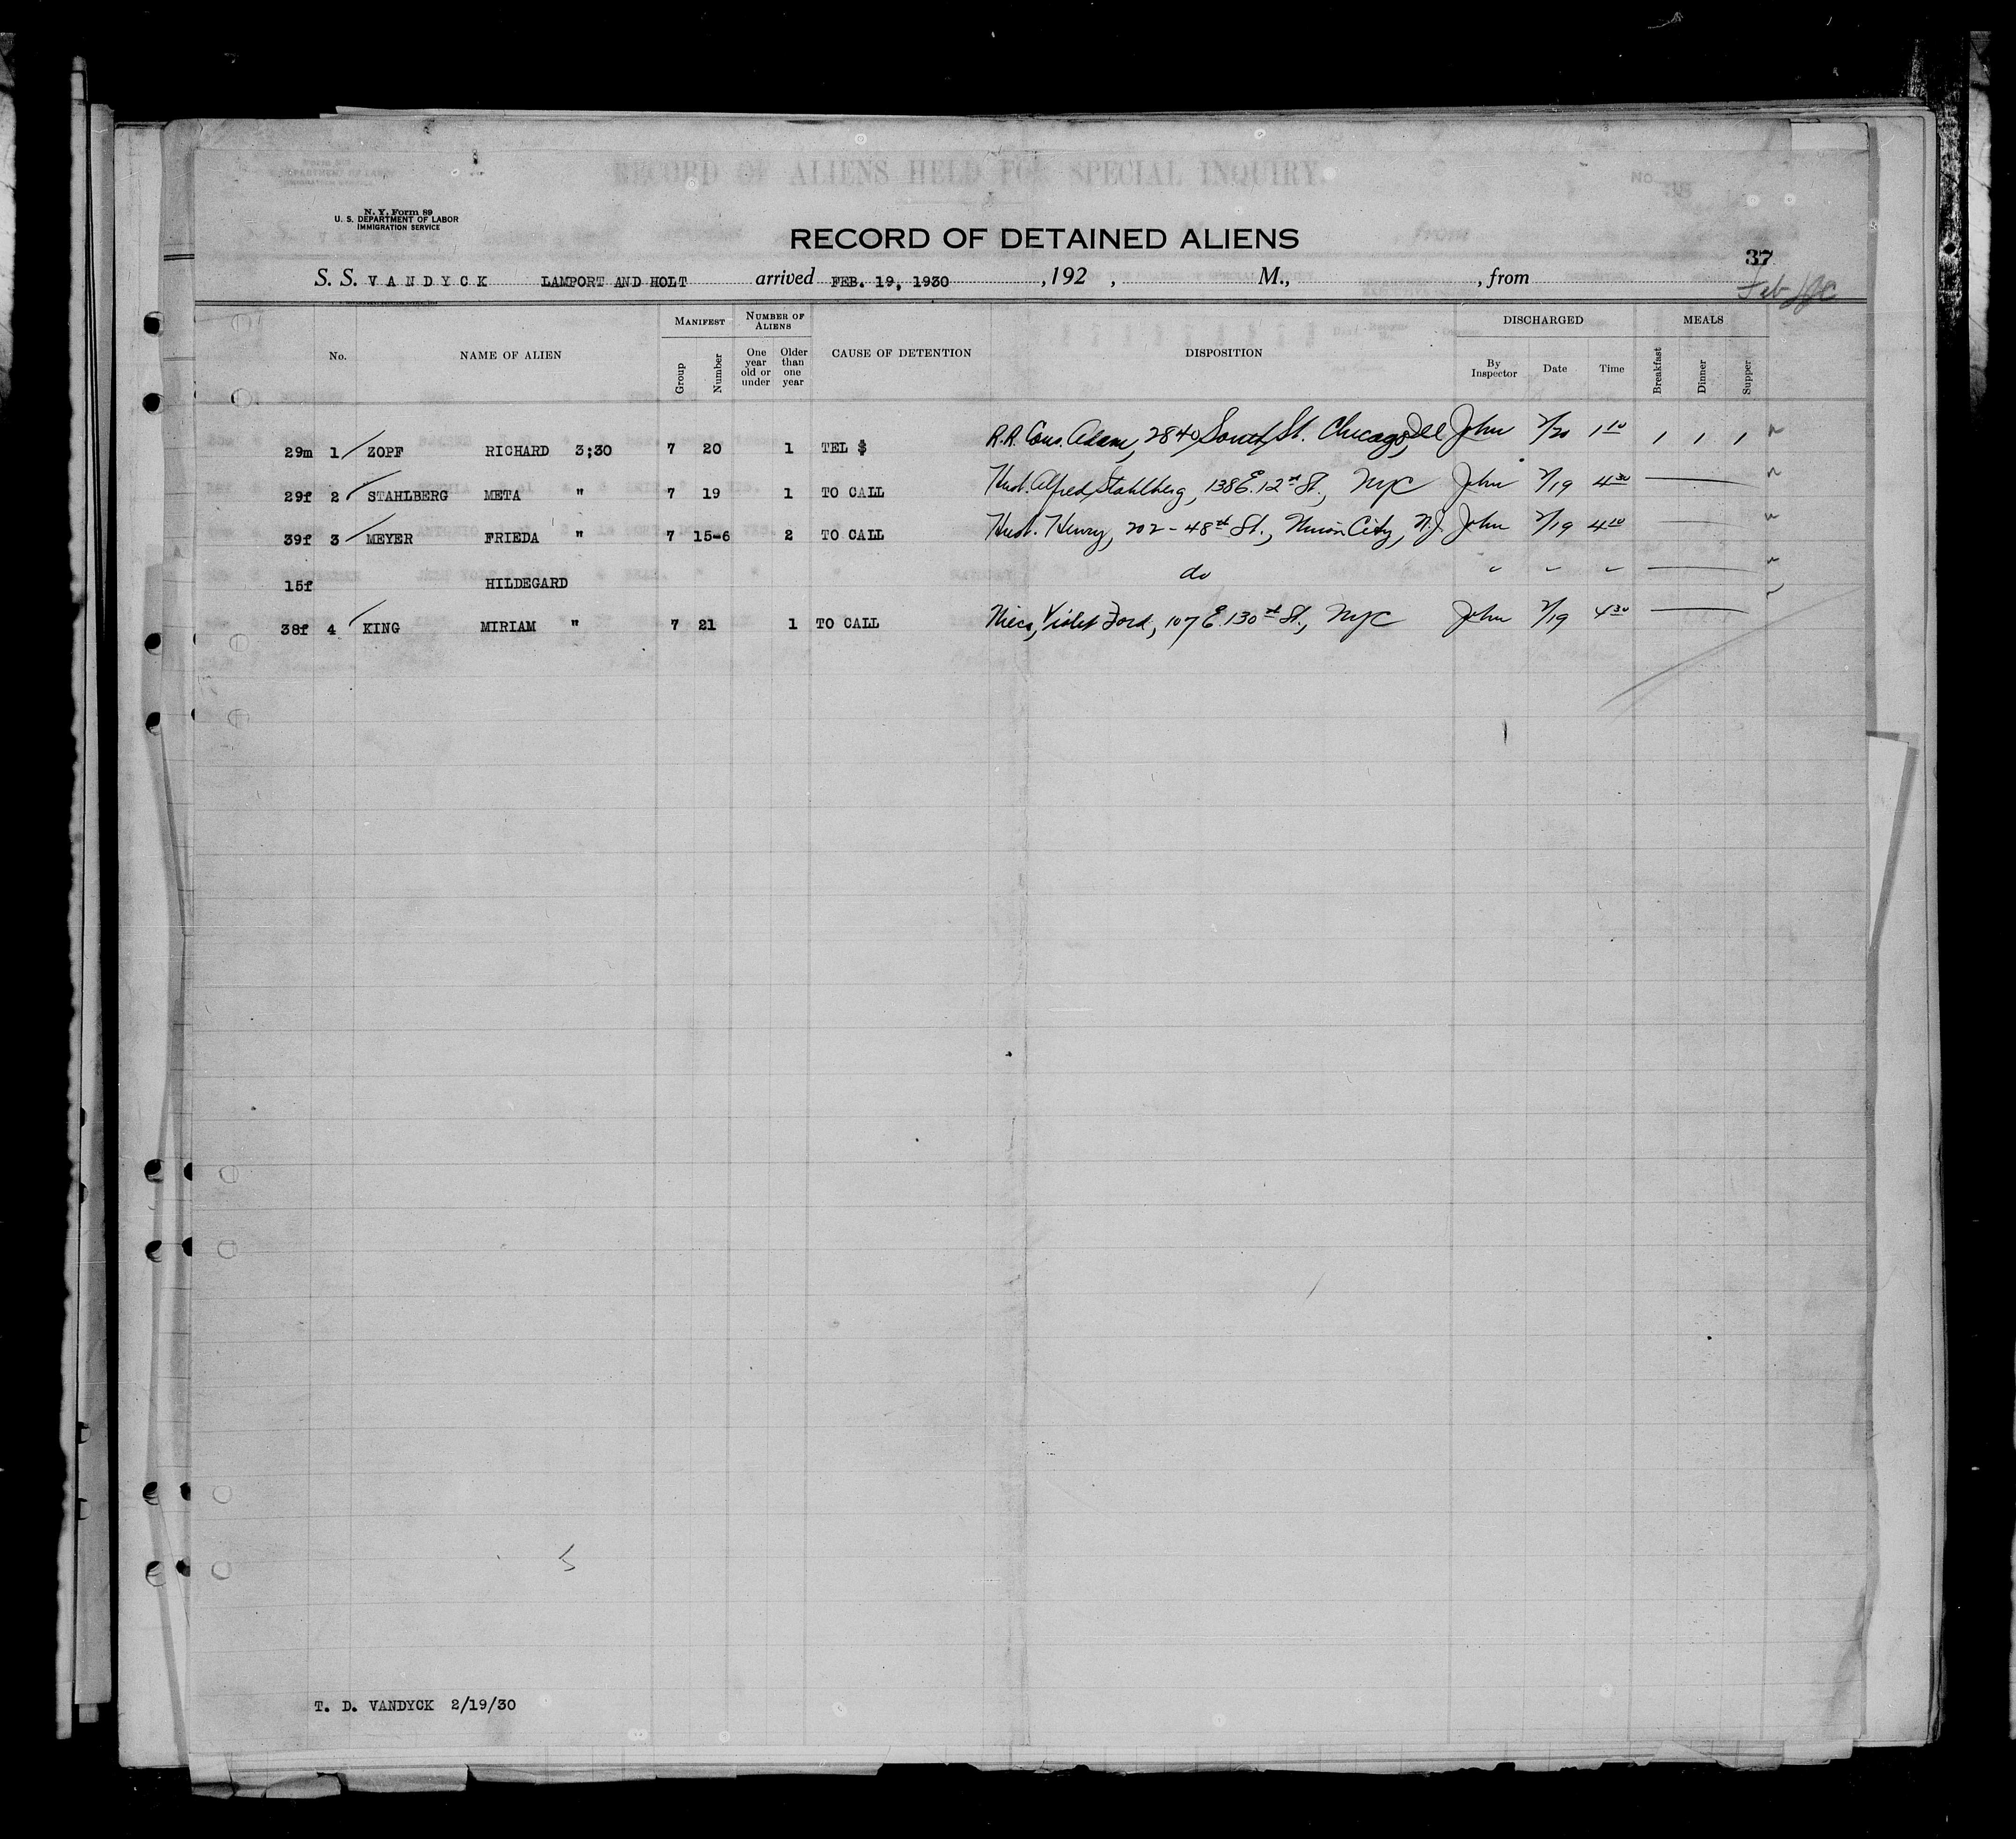 N. Y. Form 89
U. S. DEPARTMENT OF LABOR
IMMIGRATION SERVICE
RECORD OF ALIENS HELD FOR SPECIAL INQUIRY.
RECORD OF DETAINED ALIENS
37
S. S. VANDYCK LAMPORT AND HOLT arrived FEB. 19, 1930 , 192 , M., , from
Feb
No. NAME OF ALIEN MANIFEST Group Number NUMBER OF ALIENS One year old or under Older than one year CAUSE OF DETENTION DISPOSITION DISCHARGED By Inspector Date Time MEALS Breakfast Dinner Supper
29m 1 ZOPF RICHARD 3;30 7 20 1 TEL $ R.R. Cous. Adam, 2840 South St. Chicago, Ill John 2/20 1 10 1 1 1
29f 2 STAHLBERG META " 7 19 1 TO CALL Husb. Alfred Stahlberg, 138 E. 12 st St., NYC John 2/19 4 30
39f 3 MEYER FRIEDA " 7 15-6 2 TO CALL Husb. Henry, 202 - 48 st St., Union City, N.J. John 2/19 4 10
15f HILDEGARD do " " "
38f 4 KING MIRIAM " 7 21 1 TO CALL Niece, Violet Ford, 107 E. 130 st St., NYC John 2/19 4 30
5
T. D. VANDYCK 2/19/30